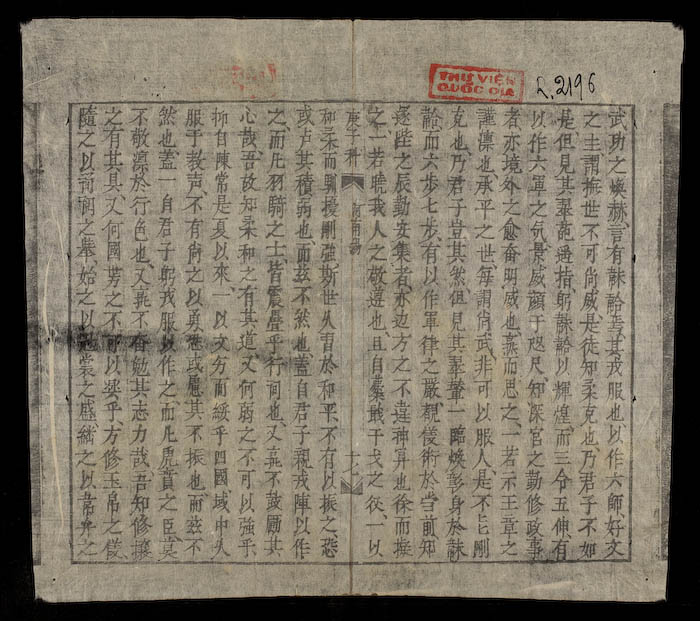 THƯ VIỆN
QUỐC GIA
R.2196
武功之煥赫言有韎韐焉其戎服也以作六師好文
之主謂撫世不可尚威是徒知柔克也乃君子不如
是但見其翠苑過指躬韎韐以輝煌而三令五伸有
以作六軍之氛景威顏于咫尺知深宮之勤修政事
者亦境外之愈奮明威也燕而思之一若示王章之
謹凛也承平之世每謂尚武非可以服人是不足剛
克也乃君子豈其然但見其翠輦一臨煥彰身於韎
韐而六步七步有以作軍律之嚴覩儀術於當前知
逐陛之辰勤安集者亦边方之不違神昇也徐而撫
之一若曉我人之敬遵也且自櫜戢干戈之後一以
庚子科
和柔而馴擾剛強斯世人習於和平不有以振之恐
或卢其積弱也而茲不然也蓋自君子親戎陣以作
之而凡羽騎之士皆震疊乎行间也又孰不鼓勵其
心哉吾故知柔和之有其道又何弱之不可以強乎
抑自陳常是夏以來一以文労而綏乎四國域中人
服于教声不有尚之以勇恐或慮其不振也而茲不
然也蓋一自君子躬戎服以作之而凡虎賁之臣莫
不敬凛於行色也又孰不奮勉其志力哉吾知修攘
之有其具又何國労之不可以奨乎方修玉帛之儀
隨之以韎韐之舉始之以冕裳之盛繼之以韋弁之